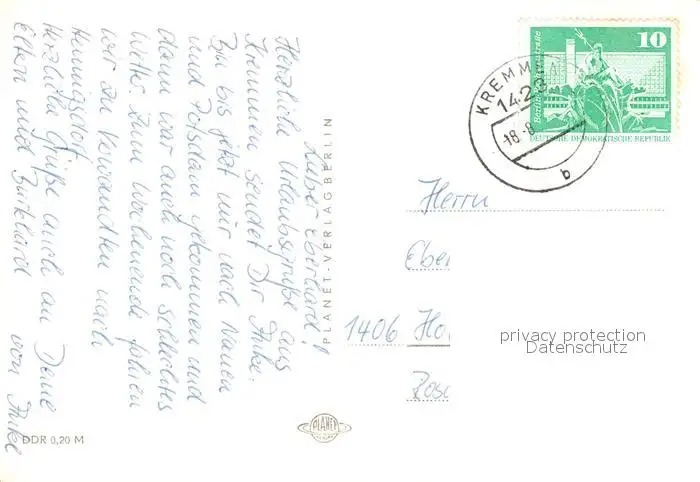 Lieber Eberhard!
Herzliche Urlaubsgrüße aus
Kremmen sendet Dir Anke.
Bin bis jetzt nur nach Nauen
und Potsdam gekommen und
dann war auch noch schlechtes
Wetter. Zum Wochenende fahren
wir zu Verwandten nach
Hennigsdorf.
Herzliche Grüße auch an Deine
Eltern und Burkhard von Anke
PLANET-VERLAG BERLIN
PLANET
DDR 0,20 M
KREMM
1423
18.-8
b
10
Berlin
DEUTSCHE DEMOKRATISCHE REPUBLIK
Herrn
Eber
1406 Ho
Rose
privacy protection
Datenschutz